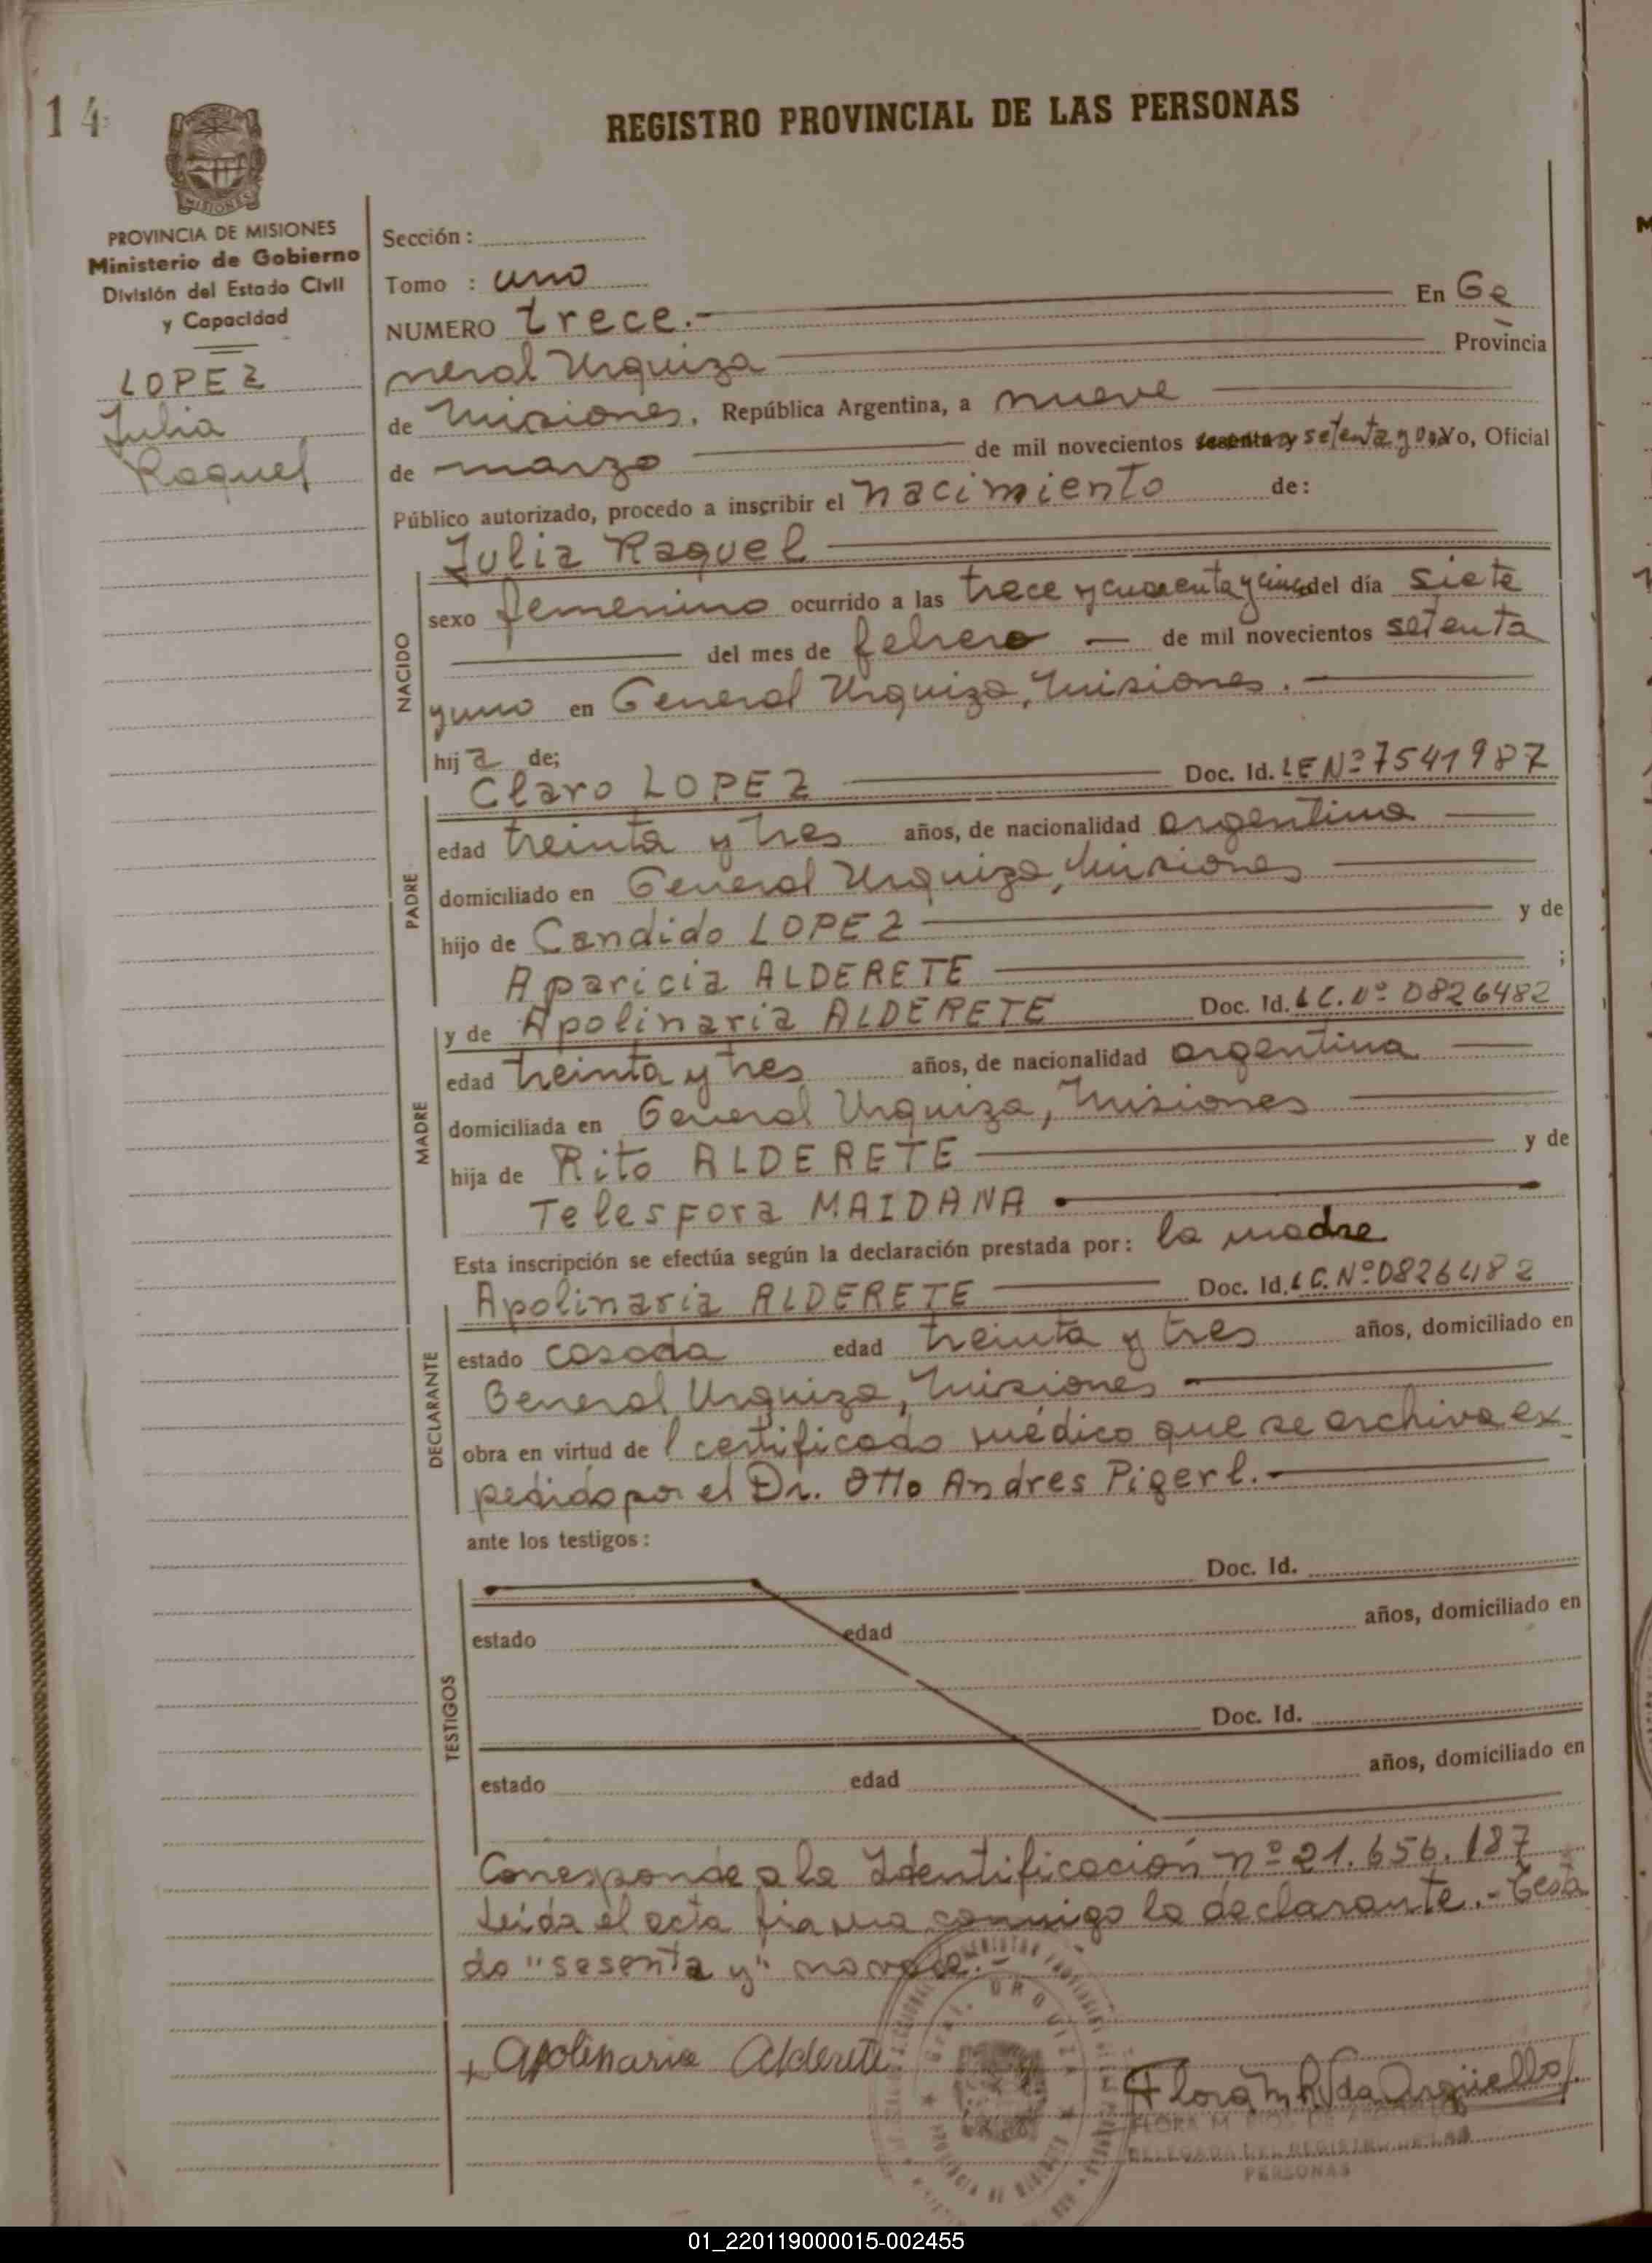 14
REGISTRO PROVINCIAL DE LAS PERSONAS
MISIONES
PROVINCIA DE MISIONES
Ministerio de Gobierno
División del Estado Civil
y Capacidad
LOPEZ
Julia
Raquel
Sección :
Tomo : uno
NUMERO trece.- En Ge
neral Urquiza Provincia
de Misiones, República Argentina, a nueve
de marzo de mil novecientos sesenta y setenta y uno Yo, Oficial
Público autorizado, procedo a inscribir el nacimiento de:
Julia Raquel
NACIDO
sexo femenino ocurrido a las trece y cuarenta y cinco del día siete
del mes de febrero — de mil novecientos setenta
y uno en General Urquiza, Misiones.
hija de;
PADRE
Claro LOPEZ Doc. Id. LE Nº 7541987
edad treinta y tres años, de nacionalidad argentina
domiciliado en General Urquiza, Misiones
hijo de Candido LOPEZ y de
Aparicia ALDERETE ;
MADRE
y de Apolinaria ALDERETE Doc. Id. L C. Nº 0826482
edad treinta y tres años, de nacionalidad argentina
domiciliada en General Urquiza, Misiones
hija de Rito ALDERETE y de
Telesfora MAIDANA
Esta inscripción se efectúa según la declaración prestada por: la madre
DECLARANTE
Apolinaria ALDERETE Doc. Id. L C. Nº 0826482
estado casada edad treinta y tres años, domiciliado en
General Urquiza, Misiones
obra en virtud de l certificado médico que se archiva ex
pedido por el Dr. Otto Andres Pigerl.-
ante los testigos:
TESTIGOS
Doc. Id.
estado edad años, domiciliado en
Doc. Id.
estado edad años, domiciliado en
Corresponde a la Identificación nº 21.656.187
Leída el acta firma conmigo la declarante.- Testa
do "sesenta y" no vale.-
Apolinaria Alderete
Flora M. R. Vda Argüello
FLORA M. RIOS DE ARGUELLO
DELEGADA DEL REGISTRO DE LAS
PERSONAS
01_220119000015-002455